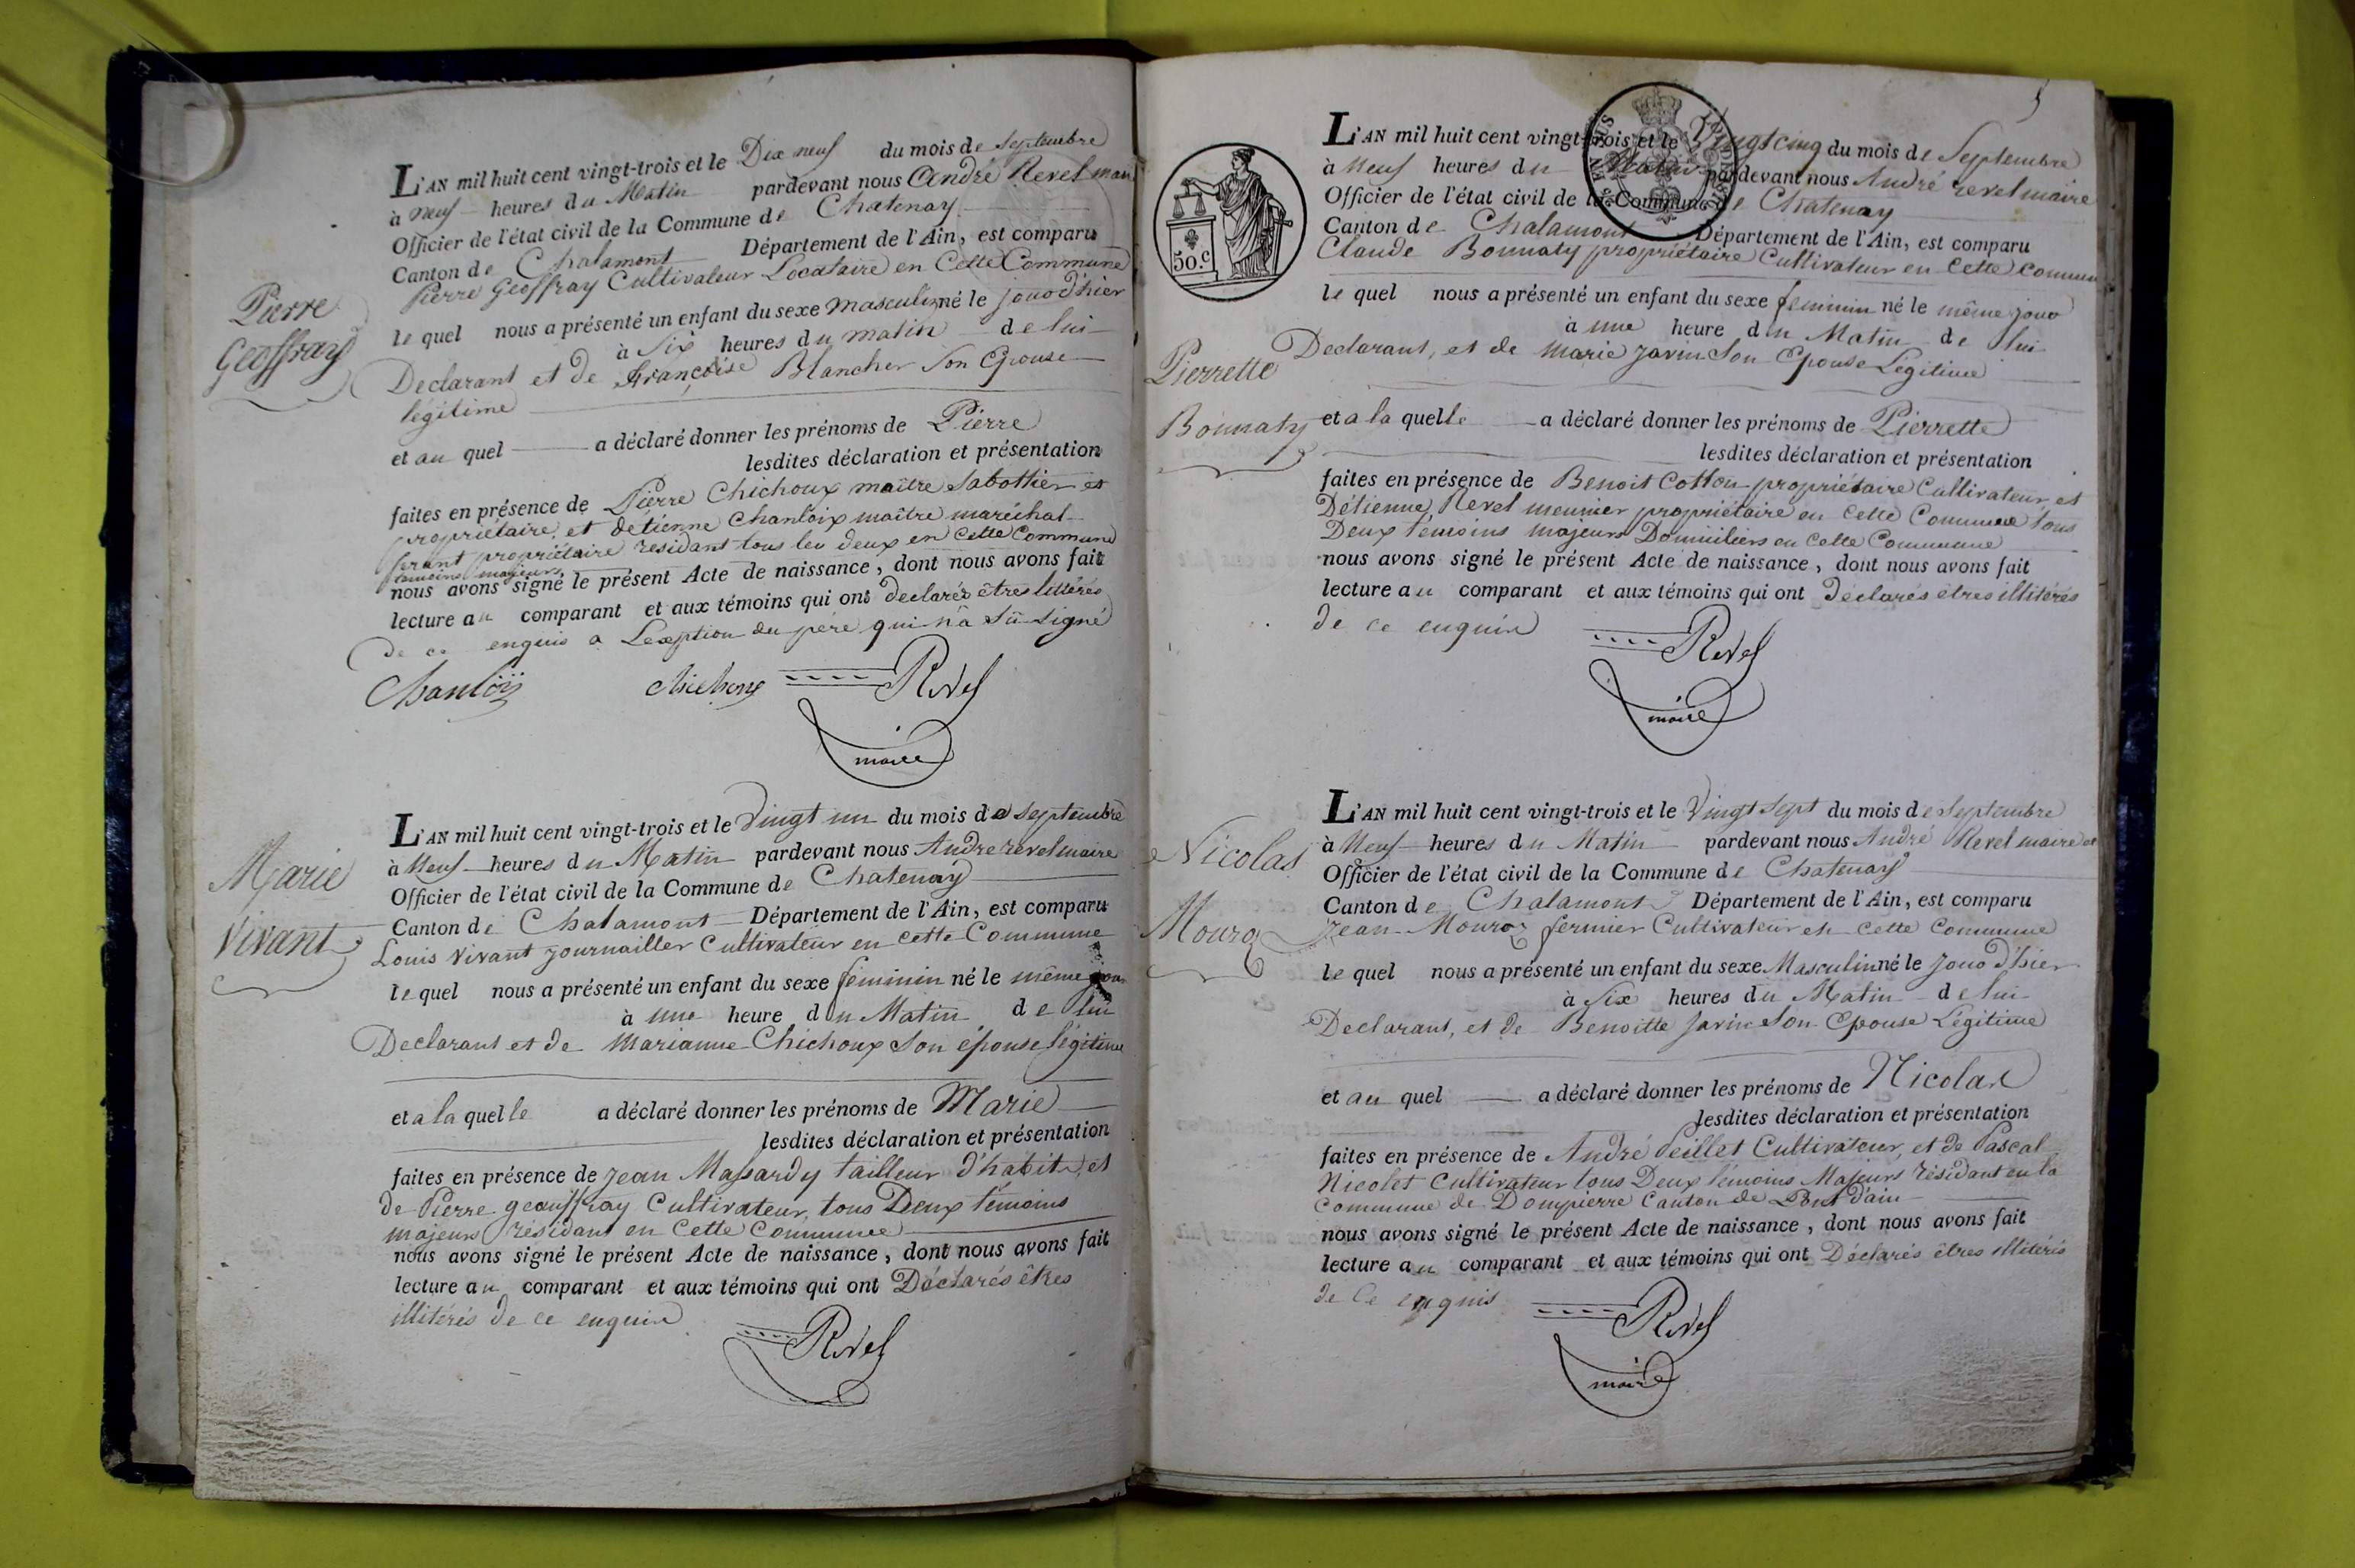 L'AN mil huit cent vingt-trois et le Dix neuf du mois de Septembre
à neuf heures du Matin pardevant nous André Revel mair
Officier de l'état civil de la Commune de Chatenay
Canton de Chalamont Département de l'Ain, est comparu
Pierre Geoffray Cultivateur Locataire en Cette Commune
le quel nous a présenté un enfant du sexe masculin né le jour d'hier
à Six heures du matin de lui
Declarant et de françoise Blancher Son Epouse
légitime
Pierre
Geoffray
et au quel a déclaré donner les prénoms de Pierre
lesdites déclaration et présentation
faites en présence de Pierre Chichoux maître Sabottier et
propriétaire, et détienne Chanloix maître maréchal
ferant propriétaire résidant tous les deux en Cette Commune
témoins majeurs
nous avons signé le présent Acte de naissance, dont nous avons fait
lecture au comparant et aux témoins qui ont declarés êtres littérés
de ce enquis a Lexeption du père qui n'a Sû signé
Chanloix chichoux Revel
maire
L'AN mil huit cent vingt-trois et le Vingt un du mois de Septembre
à Neuf heures du Matin pardevant nous André revel maire
Officier de l'état civil de la Commune de Chatenay
Canton de Chalamont Département de l'Ain, est comparu
Louis Vivant journailler Cultivateur en cette Commune
le quel nous a présenté un enfant du sexe feminin né le même jour
à une heure du Matin de lui
Declarant et de Marianne Chichoux Son épouse légitime
Marie
Vivant
et a la quelle a déclaré donner les prénoms de Marie
lesdites déclaration et présentation
faites en présence de Jean Massardy tailleur d'habits, et
de Pierre geauffray Cultivateur, tous Deux témoins
majeurs résidant en Cette Commune
nous avons signé le présent Acte de naissance, dont nous avons fait
lecture au comparant et aux témoins qui ont Déclarés êtres
illitérés de ce enquis
Revel
5
L'AN mil huit cent vingt-trois et le Vingt cinq du mois de Septembre
à Neuf heures du Matin pardevant nous André revel maire
Officier de l'état civil de la Commune de Chatenay
Canton de Chalamont Département de l'Ain, est comparu
Claude Bonnaty propriétaire Cultivateur en Cette Commune
50.c
le quel nous a présenté un enfant du sexe feminin né le même jour
à une heure du Matin de lui
Declarant, et de Marie Javin Son Epouse Légitime
Pierrette
Bonnaty
et a la quelle a déclaré donner les prénoms de Pierrette
lesdites déclaration et présentation
faites en présence de Benoit Cotton propriétaire Cultivateur, et
Détienne Revel meunier propriétaire en Cette Commune tous
Deux témoins majeurs Domiciliers en Cette Commune
nous avons signé le présent Acte de naissance, dont nous avons fait
lecture au comparant et aux témoins qui ont Déclarés êtres illitérés
de ce enquis
Revel
maire
L'AN mil huit cent vingt-trois et le Vingt Sept du mois de Septembre
à Neuf heures du Matin pardevant nous André Revel maire et
Officier de l'état civil de la Commune de Chatenay
Canton de Chalamont Département de l'Ain, est comparu
Jean Mouroz fermier Cultivateur en Cette Commune
le quel nous a présenté un enfant du sexe Masculin né le Jour d'hier
à Six heures du Matin de lui
Declarant, et de Benoitte Javin Son Epouse Légitime
Nicolas
Mouroz
et au quel a déclaré donner les prénoms de Nicolas
lesdites déclaration et présentation
faites en présence de André Peillet Cultivateur, et de Pascal
Nicolet Cultivateur tous Deux témoins Majeurs résidant en la
Commune de Dompierre Canton de Pont d'ain
nous avons signé le présent Acte de naissance, dont nous avons fait
lecture au comparant et aux témoins qui ont Déclarés êtres illitérés
de Ce enquis
Revel
maire